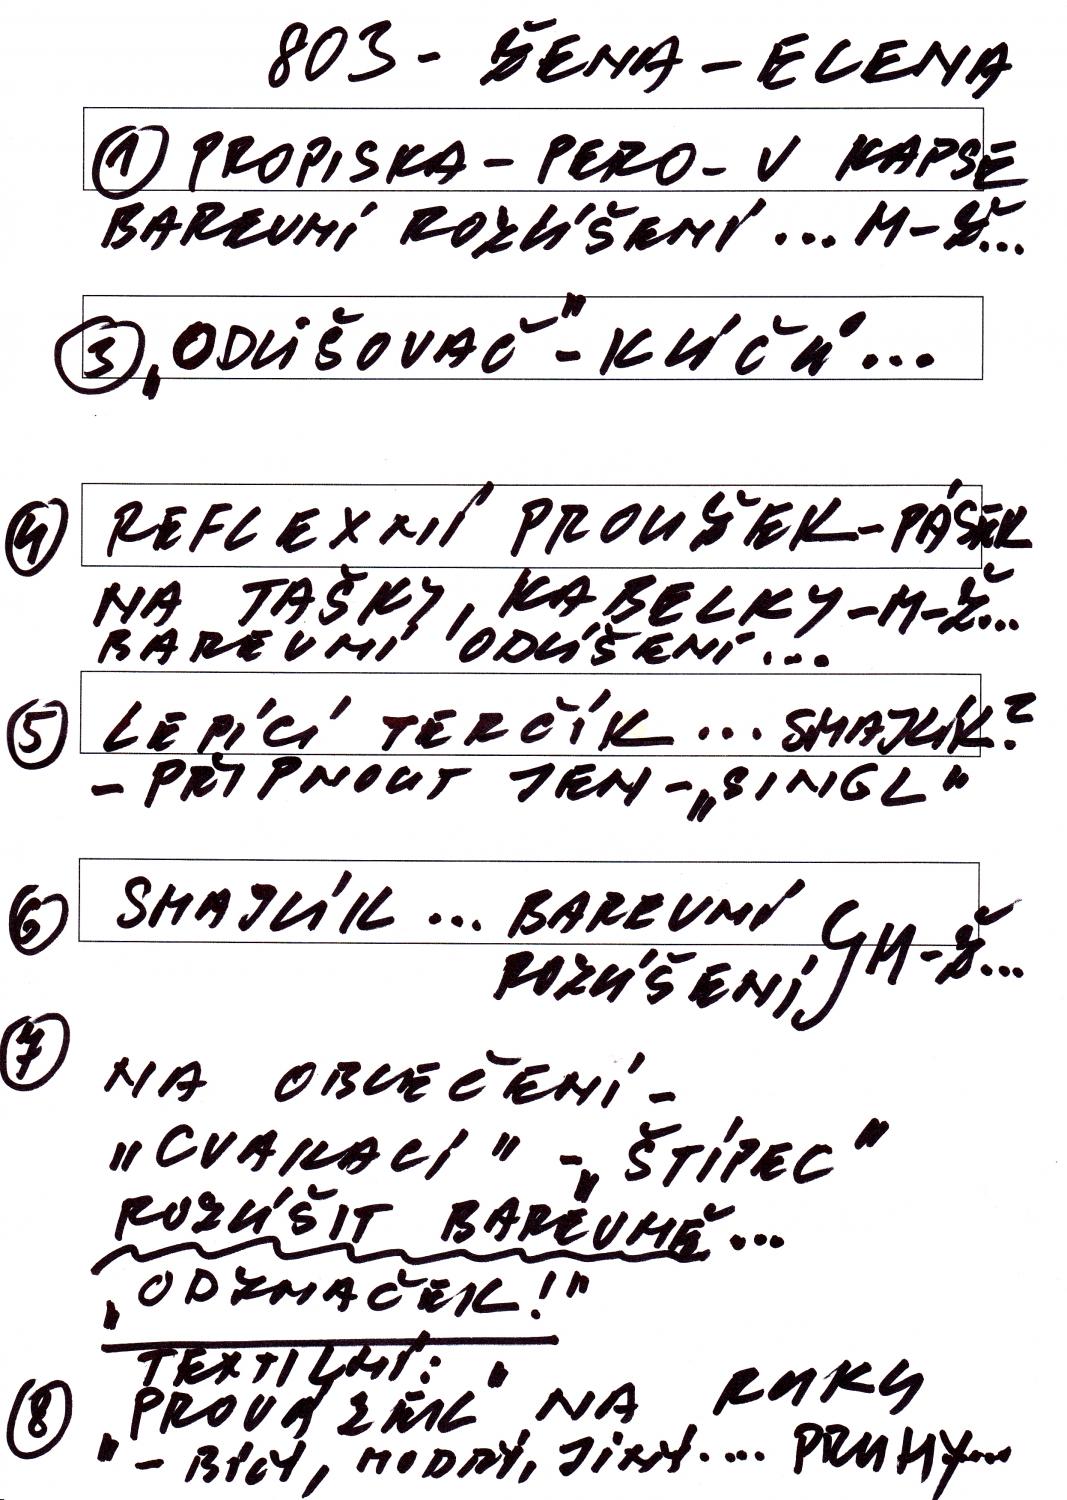 803 - ŽENA - ELENA
① PROPISKA - PERO - V KAPSE
BAREVNÍ ROZLÍŠENÍ ... M-Ž...
③ „ODLIŠOVAČ" - KLÍČŮ...
④ REFLEXNÍ PROUŽEK - PÁSEK
NA TAŠKY, KABELKY - M-Ž...
BAREVNÍ ODLÍŠENÍ...
⑤ LEPÍCÍ TERČÍK ... SMAJLÍK?
- PŘIPNOUT JEN - „SINGL"
⑥ SMAJLÍK ... BAREVNÍ
ROZLÍŠENÍ M-Ž...
⑦ NA OBLEČENÍ -
"CVAKACÍ" - „ŠTÍPEC"
ROZLÍŠIT BAREVNĚ...
„ODZNAČEK!"
TEXTILNÍ:
⑧ „PROVÁZEK" NA RUKU
- BÍLÝ, MODRÝ, JINÝ.... PRUHY....